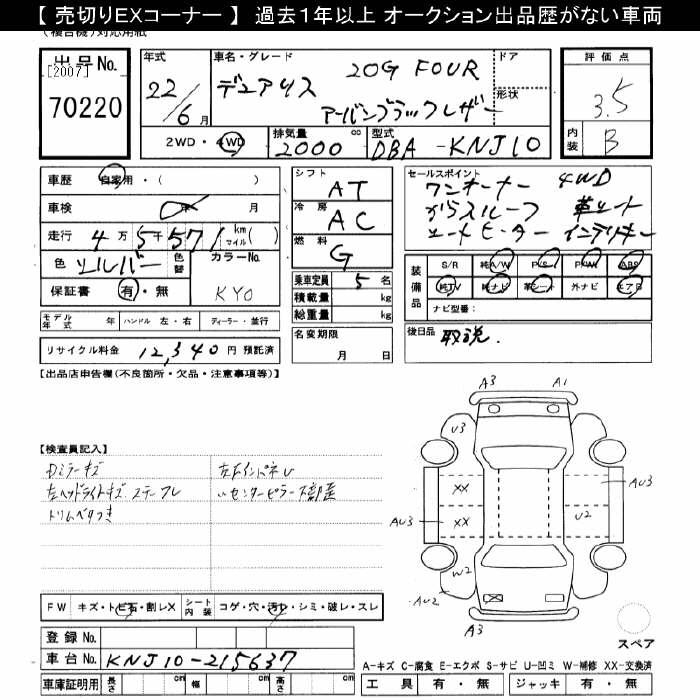 【 売切りEXコーナー 】 過去１年以上 オークション出品歴がない車両
出品No.
[2007]
70220
年式
22/6月
車名・グレード
デュアリス 20G FOUR
アーバンブラックレザー
ドア
形状
評価点
3.5
内装
B
2WD・4WD
排気量
2000
cc
型式
DBA-KNJ10
車歴
自家用・( )
車検
年 月
走行
4万5千571
km
マイル
( )
色
シルバー
色替
カラーNo.
KY0
保証書
有・無
モデル年式
年
ハンドル 左・右
ディーラー・並行
リサイクル料金 12,340 円 預託済
シフト
AT
冷房
AC
燃料
G
乗車定員 5 名
積載量 kg
総重量 kg
名変期限
月 日
セールスポイント
ワンオーナー 4WD
ガラスルーフ 革シート
シートヒーター インテリキー
装備品
S/R 純A/W P/S P/W ABS
純TV 純ナビ 革シート 外ナビ エアB
ナビ型番:
後日品
取説.
【出品店申告欄(不良箇所・欠品・注意事項等)】
【検査員記入】
Dミラーキズ
左ヘッドライトキズ
トリムベタつき
左Fインパネ
〃センターピラー下部
A3 A1
U3
XX
AU3
AU3
XX
U2
W2
AU2
A3
スペア
FW
キズ・トビ石・割レX
シート内装
コゲ・穴・汚レ・シミ・破レ・スレ
登録No.
車台No. KNJ10-215637
車庫証明用
長さ cm 幅 cm 高さ cm
A-キズ C-腐食 E-エクボ S-サビ U-凹ミ W-補修 XX-交換済
工具 有・無 ジャッキ 有・無